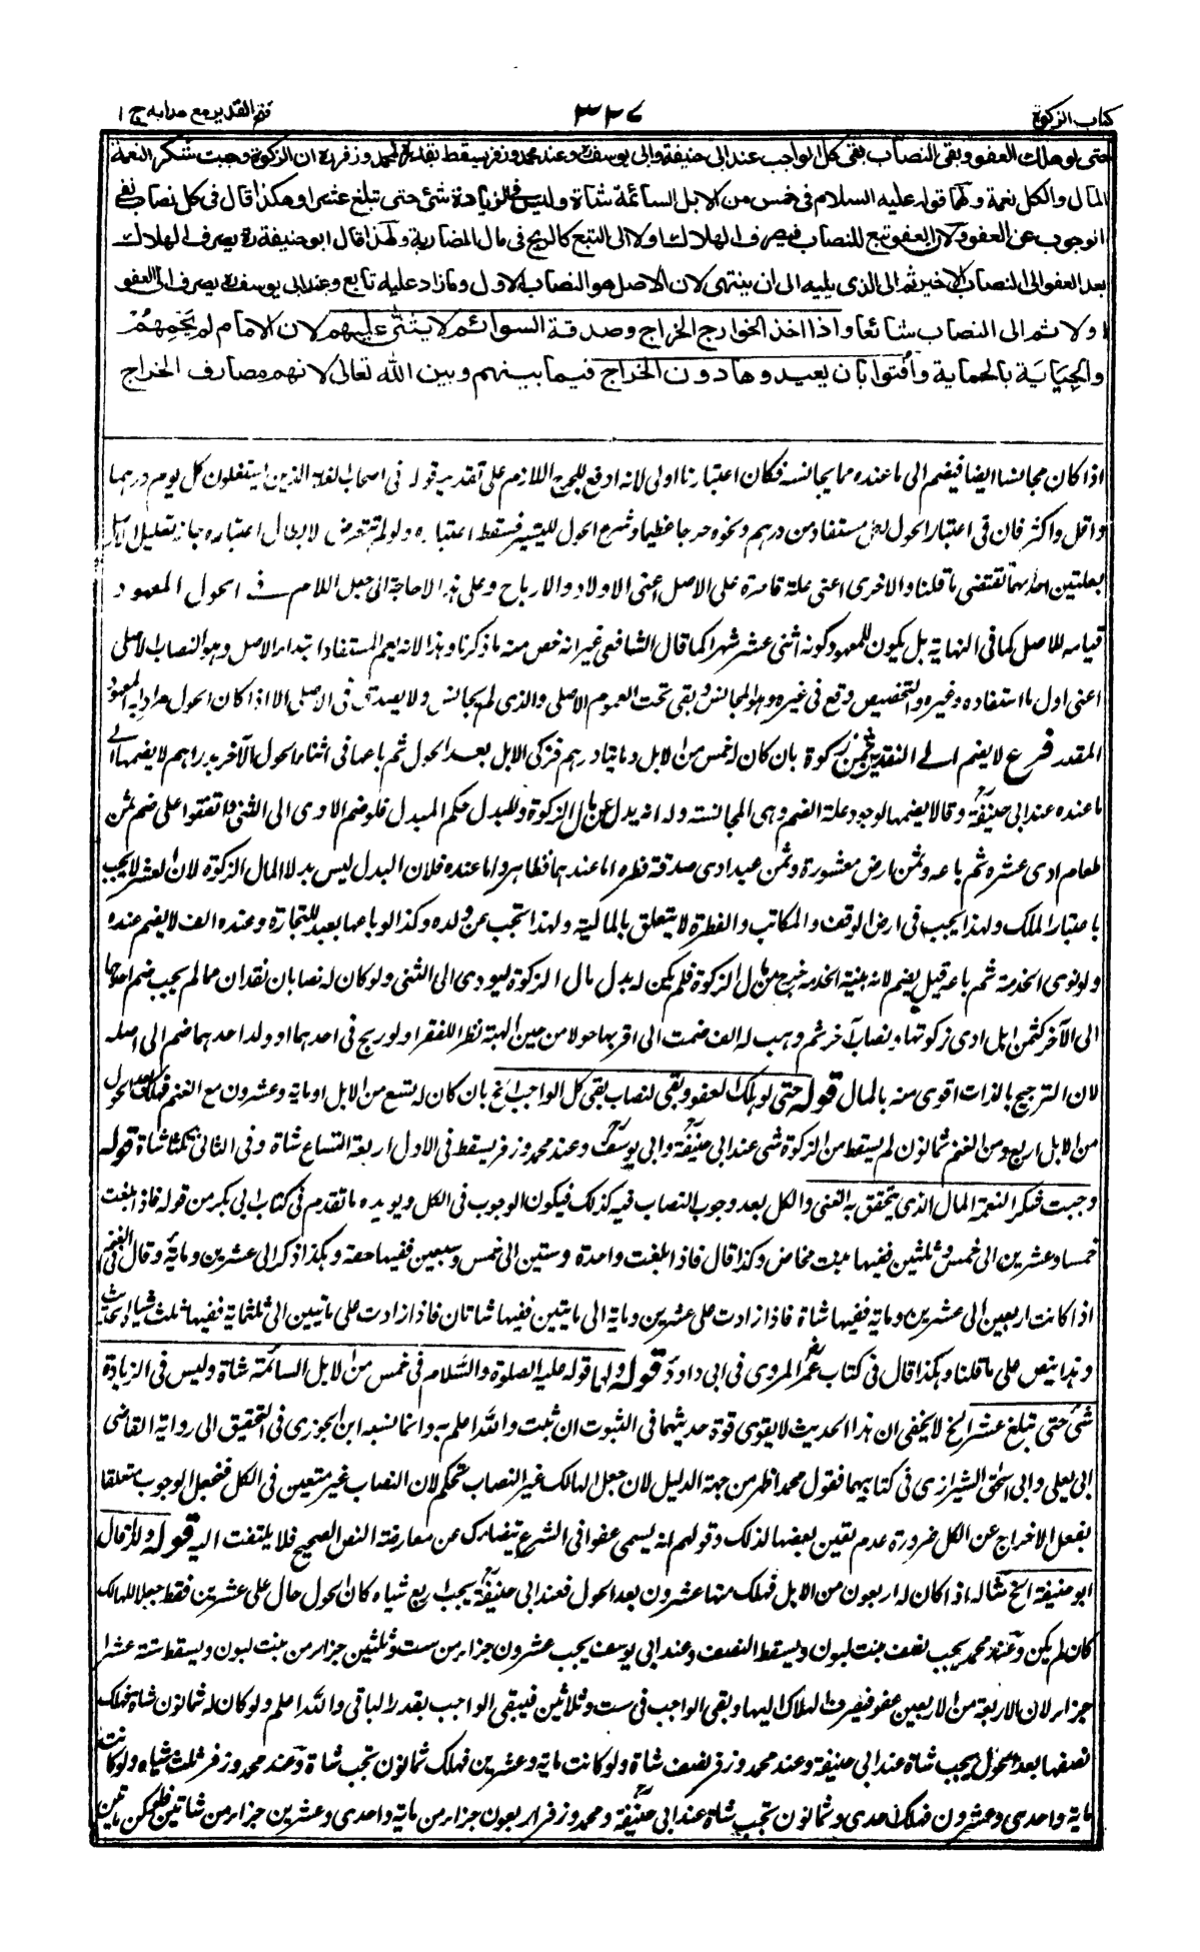 كتاب الزكوة
٣٢٧
فتح القدير مع هدايه ج ١
حتى لو هلك العفو وبقى النصاب بقى كل الواجب عند ابى حنيفة وابى يوسف وعند محمد وزفر يسقط بقدره لمحمد وزفر ان الزكوة وجبت شكر النعمة
المال والكل نعمة ولهما قوله عليه السلام فى خمس من الابل السائمة شاة وليس فى الزيادة شئ حتى تبلغ عشرا وهكذا قال فى كل نصاب نفى
الوجوب عن العفو ولان العفو تبع للنصاب فيصرف الهلاك اولا الى التبع كالربح فى مال المضاربة ولهذا قال ابو حنيفة ره يصرف الهلاك
بعد العفو الى النصاب الاخير ثم الى الذى يليه الى ان ينتهى لان الاصل هو النصاب الاول وما زاد عليه تابع وعند ابى يوسف ره يصرف الى العفو
اولا ثم الى النصاب شائعا واذا اخذ الخوارج الخراج وصدقة السوائم لا يثنى عليهم لان الامام لم يحمهم
والجباية بالحماية وافتوا بان يعيدوها دون الخراج فيما بينهم وبين الله تعالى لانهم مصارف الخراج
اذا كان مجانسا ايضا فيضم الى ما عنده مما يجانسه فكان اعتبارنا اولى لانه ادفع للحرج اللازم على تقدير قوله فى اصحاب الغلة الذين يستغلون كل يوم درهما
واقل واكثر فان فى اعتبار الحول لكل مستفاد من درهم ونحوه حرجا عظيما وشرع الحول للتيسير فسقط اعتباره ولو لم يتعرض لابطال اعتباره جاز تعليل الاصل
بعلتين احداهما تقتضى ما قلنا والاخرى اعنى علة قاصرة على الاصل اعنى الاولاد والارباح وعلى هذا لا حاجة الى جعل اللام فى الحول المعهود
قيامه للاصل كما فى النهاية بل يكون للمعهود كونه اثنى عشر شهرا كما قال الشافعى غير انه خص منه ما ذكرنا وهذا لانه يعم المستفاد ابتداء الاصل وهو النصاب الاصلى
اعنى اول ما استفاده وغيره والتخصيص وقع فى غيره وهو المجانس وبقى تحت العموم الاصلى والذى لم يجانس ولا يصدق فى الاصلى الا اذا كان الحول مرادا به المعهود
المقدر فرع لا يضم الى النقدين ثمن زكوة بان كان له خمس من الابل ومايتا درهم فزكى الابل بعد الحول ثم باعها فى اثناء الحول الآخر بدراهم لا يضمها الى
ما عنده عند ابى حنيفة وقالا يضمها لوجود علة الضم وهى المجانسة وله انه بدل عن مال الزكوة وللبدل حكم المبدل فلو ضم لادى الى الثنى واتفقوا على ضم ثمن
طعام ادى عشره ثم باعه وثمن ارض معشورة وثمن عبد ادى صدقة فطره اما عندهما فظاهر واما عنده فلان البدل ليس بدلا لمال الزكوة لان العشر لا يجب
باعتبار الملك ولهذا يجب فى ارض الوقف والمكاتب والفطرة لا يتعلق بالمالية ولهذا تجب عن ولده وكذا لو باعها بعبد للتجارة وعنده الف لا يضم عنده
ولو نوى الخدمة ثم باعه قيل يضم لانه بنية الخدمة خرج من مال الزكوة فلم يكن له بدل مال الزكوة ليودى الى الثنى ولو كان له نصابان نقدان مما لم يجب ضم احدهما
الى الآخر كثمن ابل ادى زكوتها ونصاب آخر ثم وهب له الف ضمت الى اقربهما حولا من حين الهبة نظرا للفقراء ولو ربح فى احدهما او ولد احدهما ضم الى اصله
لان الترجيح بالذات اقوى منه بالمال قوله حتى لو هلك العفو وبقى النصاب بقى كل الواجب الخ بان كان له تسع من الابل او ماية وعشرون من الغنم فهلك بعد الحول
من الابل اربع ومن الغنم ثمانون لم يسقط من الزكوة شئ عند ابى حنيفة وابى يوسف وعند محمد وزفر يسقط فى الاول اربعة اتساع شاة وفى الثانى ثلثا شاة قوله
وجبت شكرا لنعمة المال الذى يتحقق به الغنى والكل بعد وجوب النصاب فيه كذلك فيكون الوجوب فى الكل ويويده ما تقدم فى كتاب ابى بكر من قوله فاذا بلغت
خمسا وعشرين الى خمس وثلثين ففيها بنت مخاض وكذا قال فاذا بلغت واحدة وستين الى خمس وسبعين ففيها حقة وهكذا ذكر الى عشرين وماية وقال فى الغنم
اذا كانت اربعين الى عشرين وماية ففيها شاة فاذا زادت على عشرين وماية الى مايتين ففيها شاتان فاذا زادت على مايتين الى ثلثماية ففيها ثلث شياه الحديث
وهذا ينص على ما قلنا وهكذا قال فى كتاب عمر المروى فى ابى داود قوله ولهما قوله عليه الصلوة والسلام فى خمس من الابل السائمة شاة وليس فى الزيادة
شئ حتى تبلغ عشرا الخ لا يخفى ان هذا الحديث لا يقوى قوة حديثهما فى الثبوت ان ثبت والله اعلم به وانما نسبه ابن الجوزى فى التحقيق الى رواية القاضى
ابى يعلى وابى اسحق الشيرازى فى كتابيهما فقول محمد اظهر من جهة الدليل لان جعل الهالك غير النصاب تحكم لان النصاب غير متعين فى الكل فجعل الوجوب متعلقا
بفعل الاخراج عن الكل ضرورة عدم تعين بعضها لذلك وقولهم انه يسمى عفوا فى الشرع يتضاءل عن معارضة النص الصحيح فلا يلتفت اليه قوله ولهذا قال
ابو حنيفة الخ مثاله اذا كان له اربعون من الابل فهلك منها عشرون بعد الحول فعند ابى حنيفة يجب اربع شياه كان الحول حال على عشرين فقط جعلا للهالك
كان لم يكن وعند محمد يجب نصف بنت لبون ويسقط النصف وعند ابى يوسف يجب عشرون جزاء من ست وثلثين جزاء من بنت لبون ويسقط ستة عشر
جزاء لان الاربعة من الاربعين عفو فيصرف الهلاك اليها وبقى الواجب فى ست وثلاثين فيبقى الواجب بقدر الباقى والله اعلم ولو كان له ثمانون شاة فهلك
نصفها بعد الحول يجب شاة عند ابى حنيفة وعند محمد وزفر نصف شاة ولو كانت ماية وعشرين فهلك ثمانون تجب شاة وعند محمد وزفر ثلث شياه ولو كانت
ماية واحدى وعشرون فهلك احدى وثمانون تجب شاة عند ابى حنيفة ومحمد وزفر اربعون جزاء من ماية واحدى وعشرين جزاء من شاتين